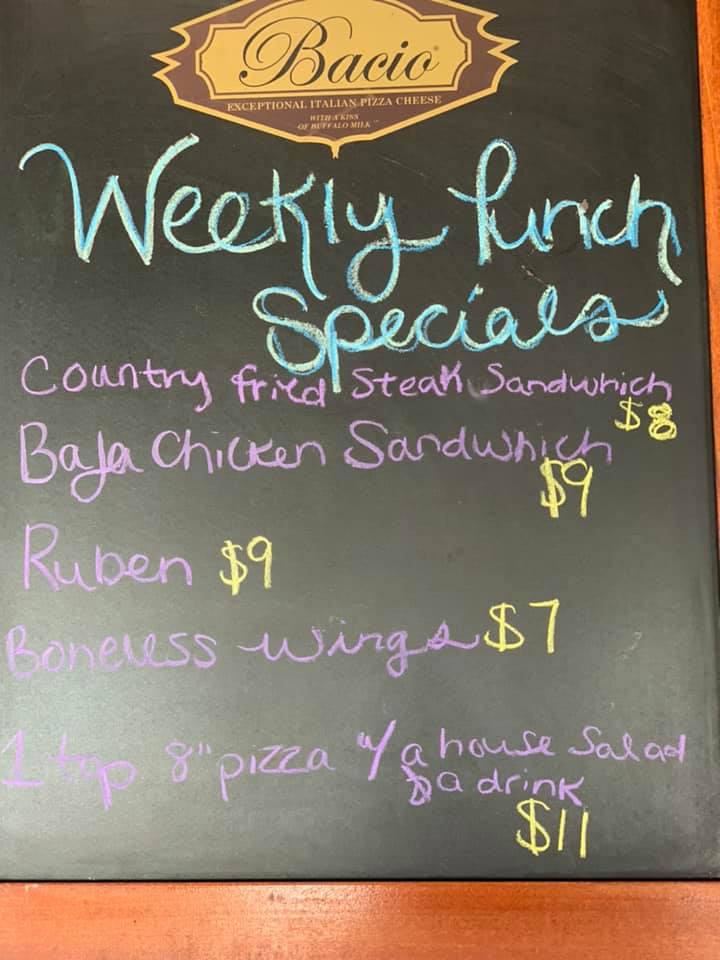 Bacio
EXCEPTIONAL ITALIAN PIZZA CHEESE
WITH A KISS
OF BUFFALO MILK™
Weekly Lunch
Specials
Country fried Steak Sandwhich
$8
Baja Chicken Sandwhich
$9
Ruben $9
Boneless wings $7
1 top 8" pizza w/ a house Salad
& a drink
$11